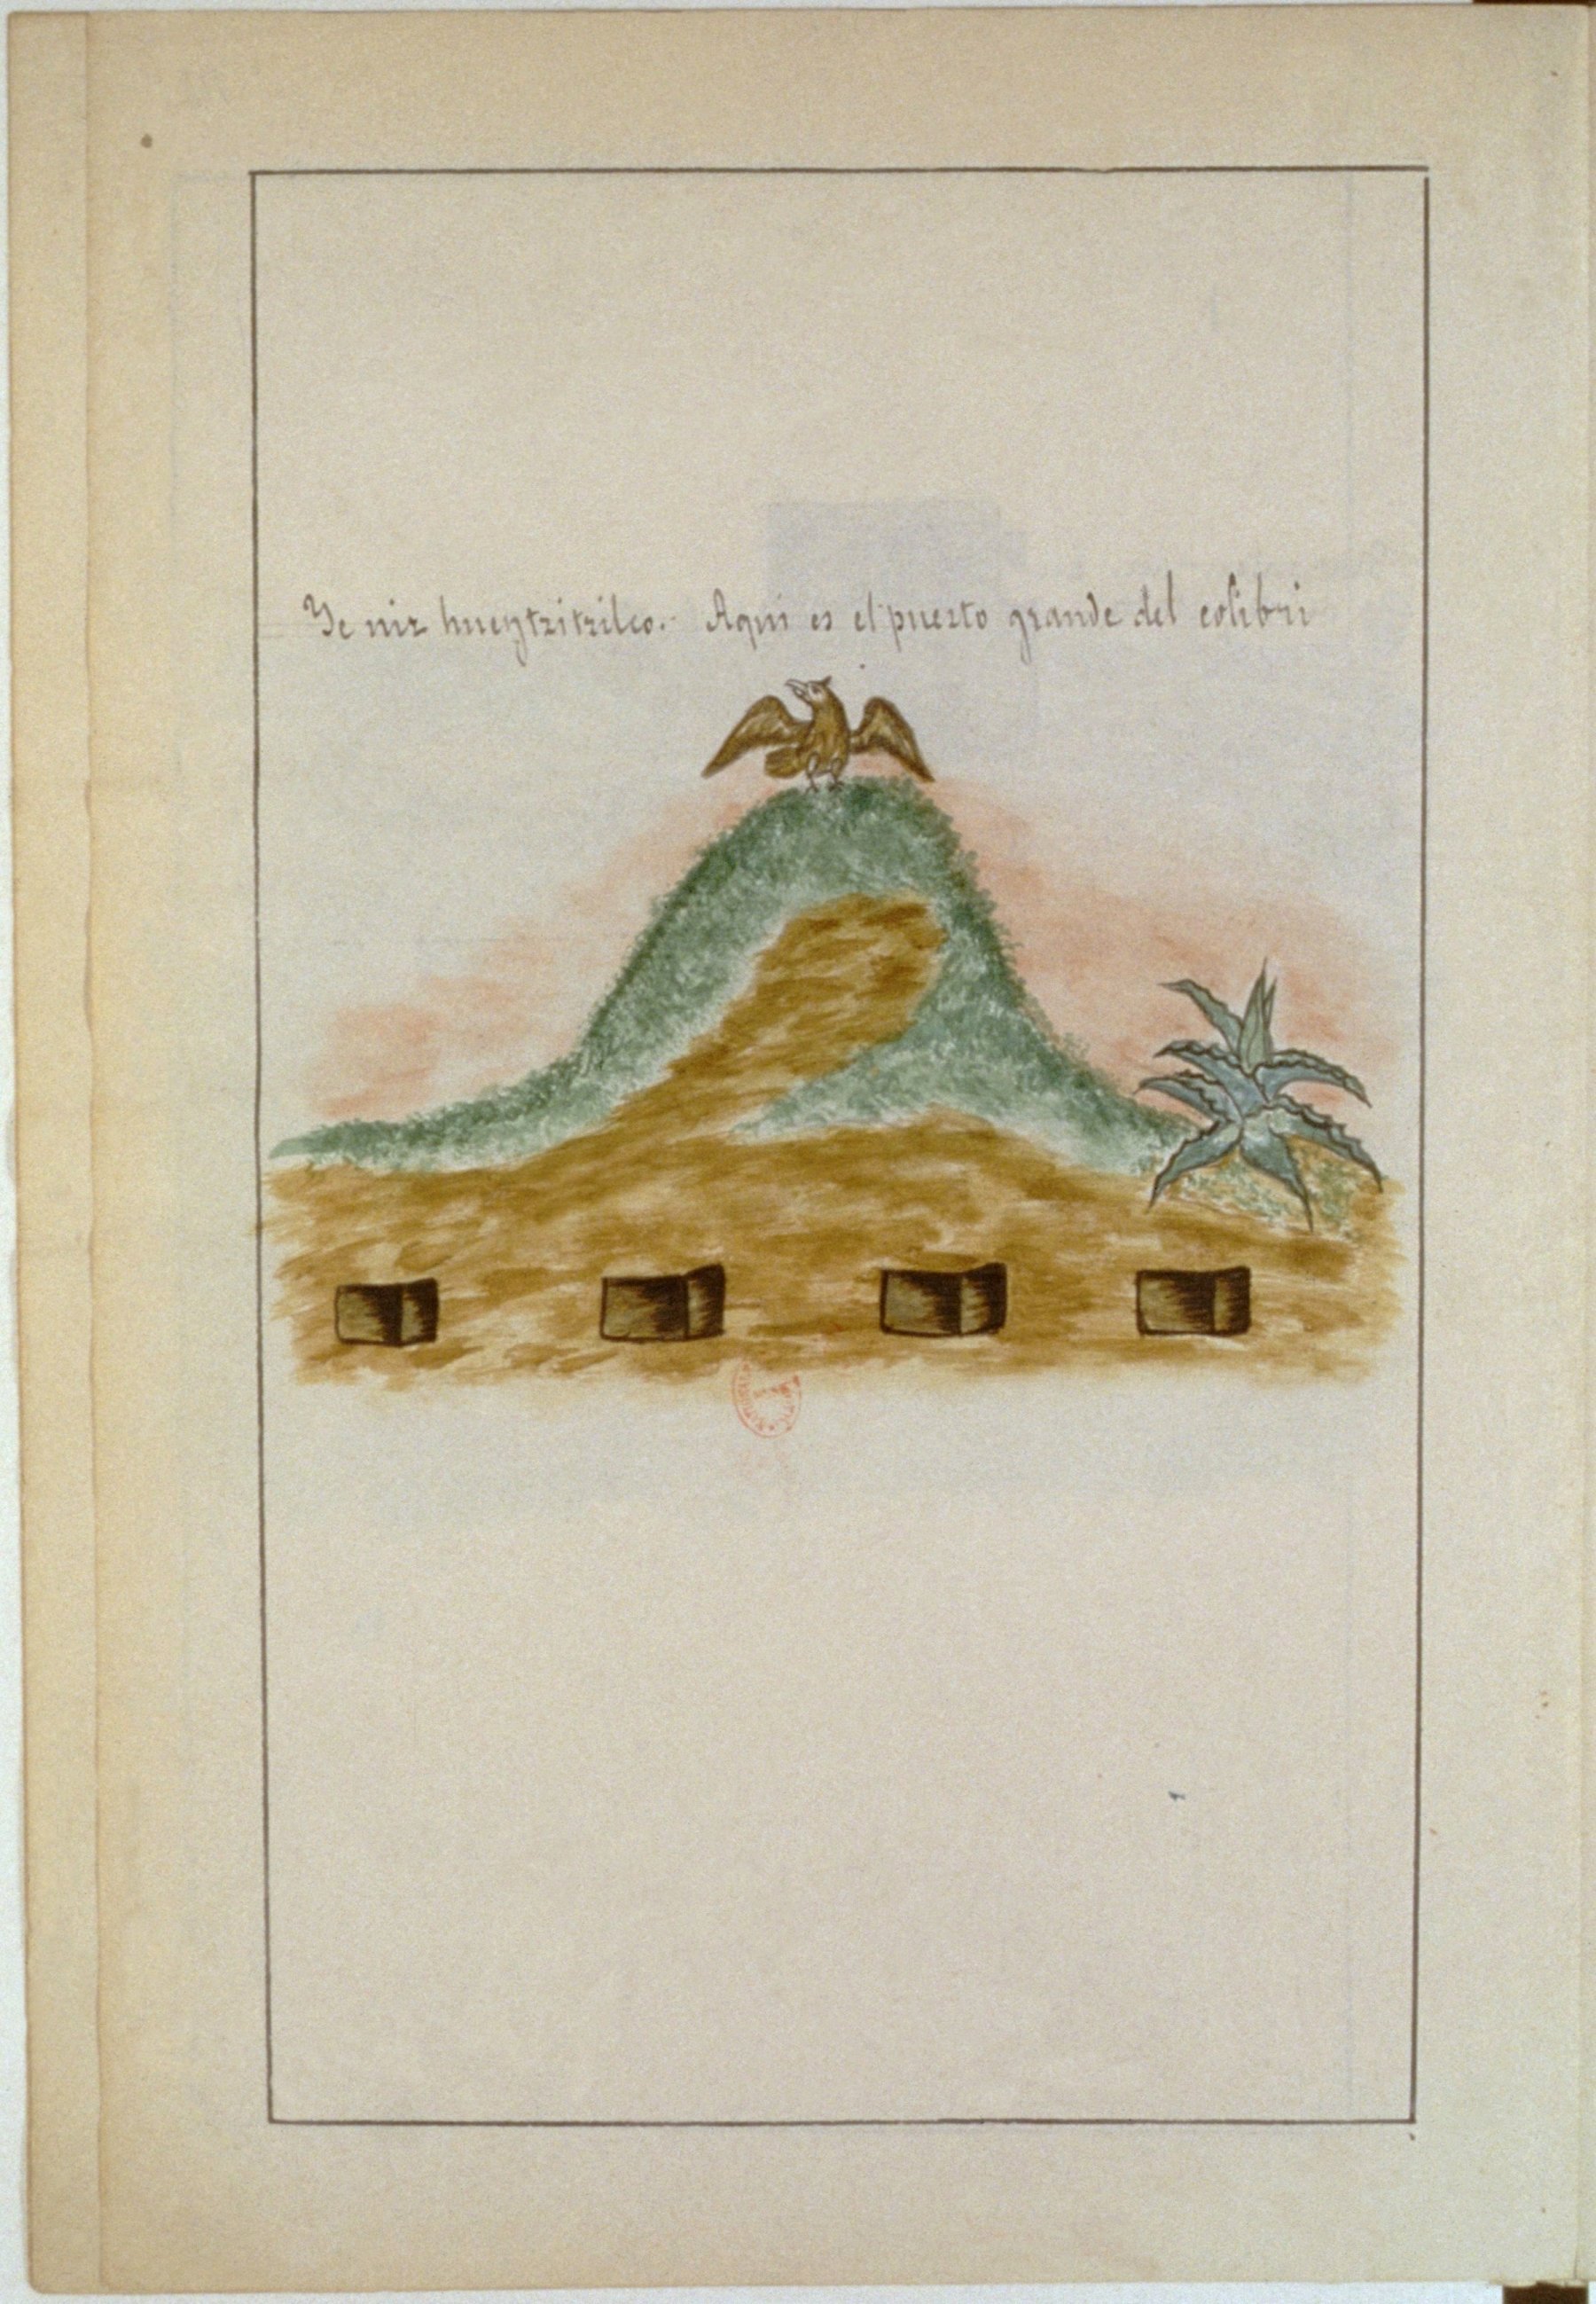 Ye niz hueytzitzilco. Aqui es el puerto grande del colibri